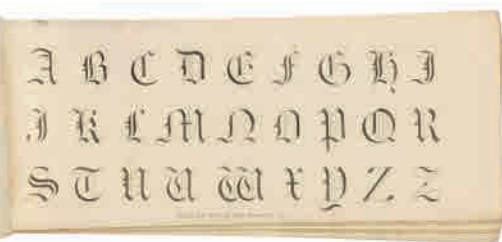 A B C D E F G H I
J K L M N O P Q R
S T U V W X Y Z Z